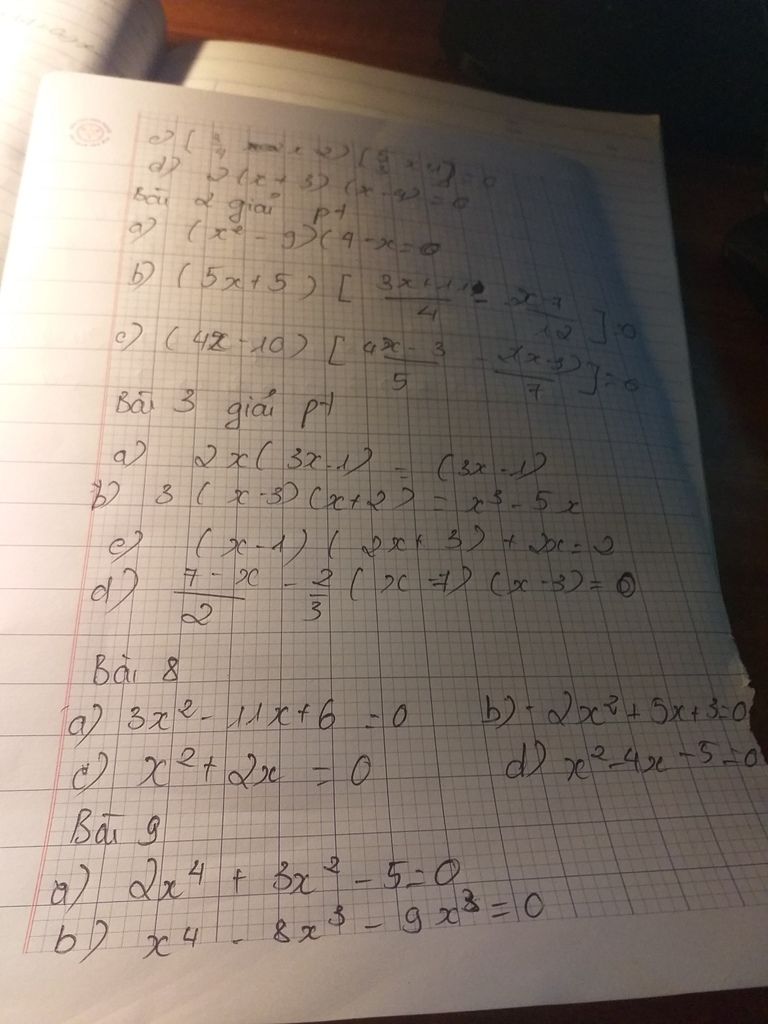 d) 2(x+3)(x-4) = 0
Bài 2 giải pt
a) (x² - 9)(4 - x = 0
b) (5x+5) [ 3x+11/4 - x-1/12 ] = 0
c) (4x - 10) [ 4x - 3/5 - 1(x-3)/7 ] = 0
Bài 3 giải pt
a) 2x(3x-1) = (3x-1)
b) 3(x-3)(x+2) = x³ - 5x
c) (x-1)(2x+3) + 2x = 2
d) 7-x/2 - 2/3 (x-7)(x-3) = 0
Bài 8
a) 3x² - 11x + 6 = 0 b) -2x² + 5x + 3 = 0
c) x² + 2x = 0 d) x² - 4x - 5 = 0
Bài 9
a) 2x⁴ + 3x² - 5 = 0
b) x⁴ - 8x³ - 9x³ = 0